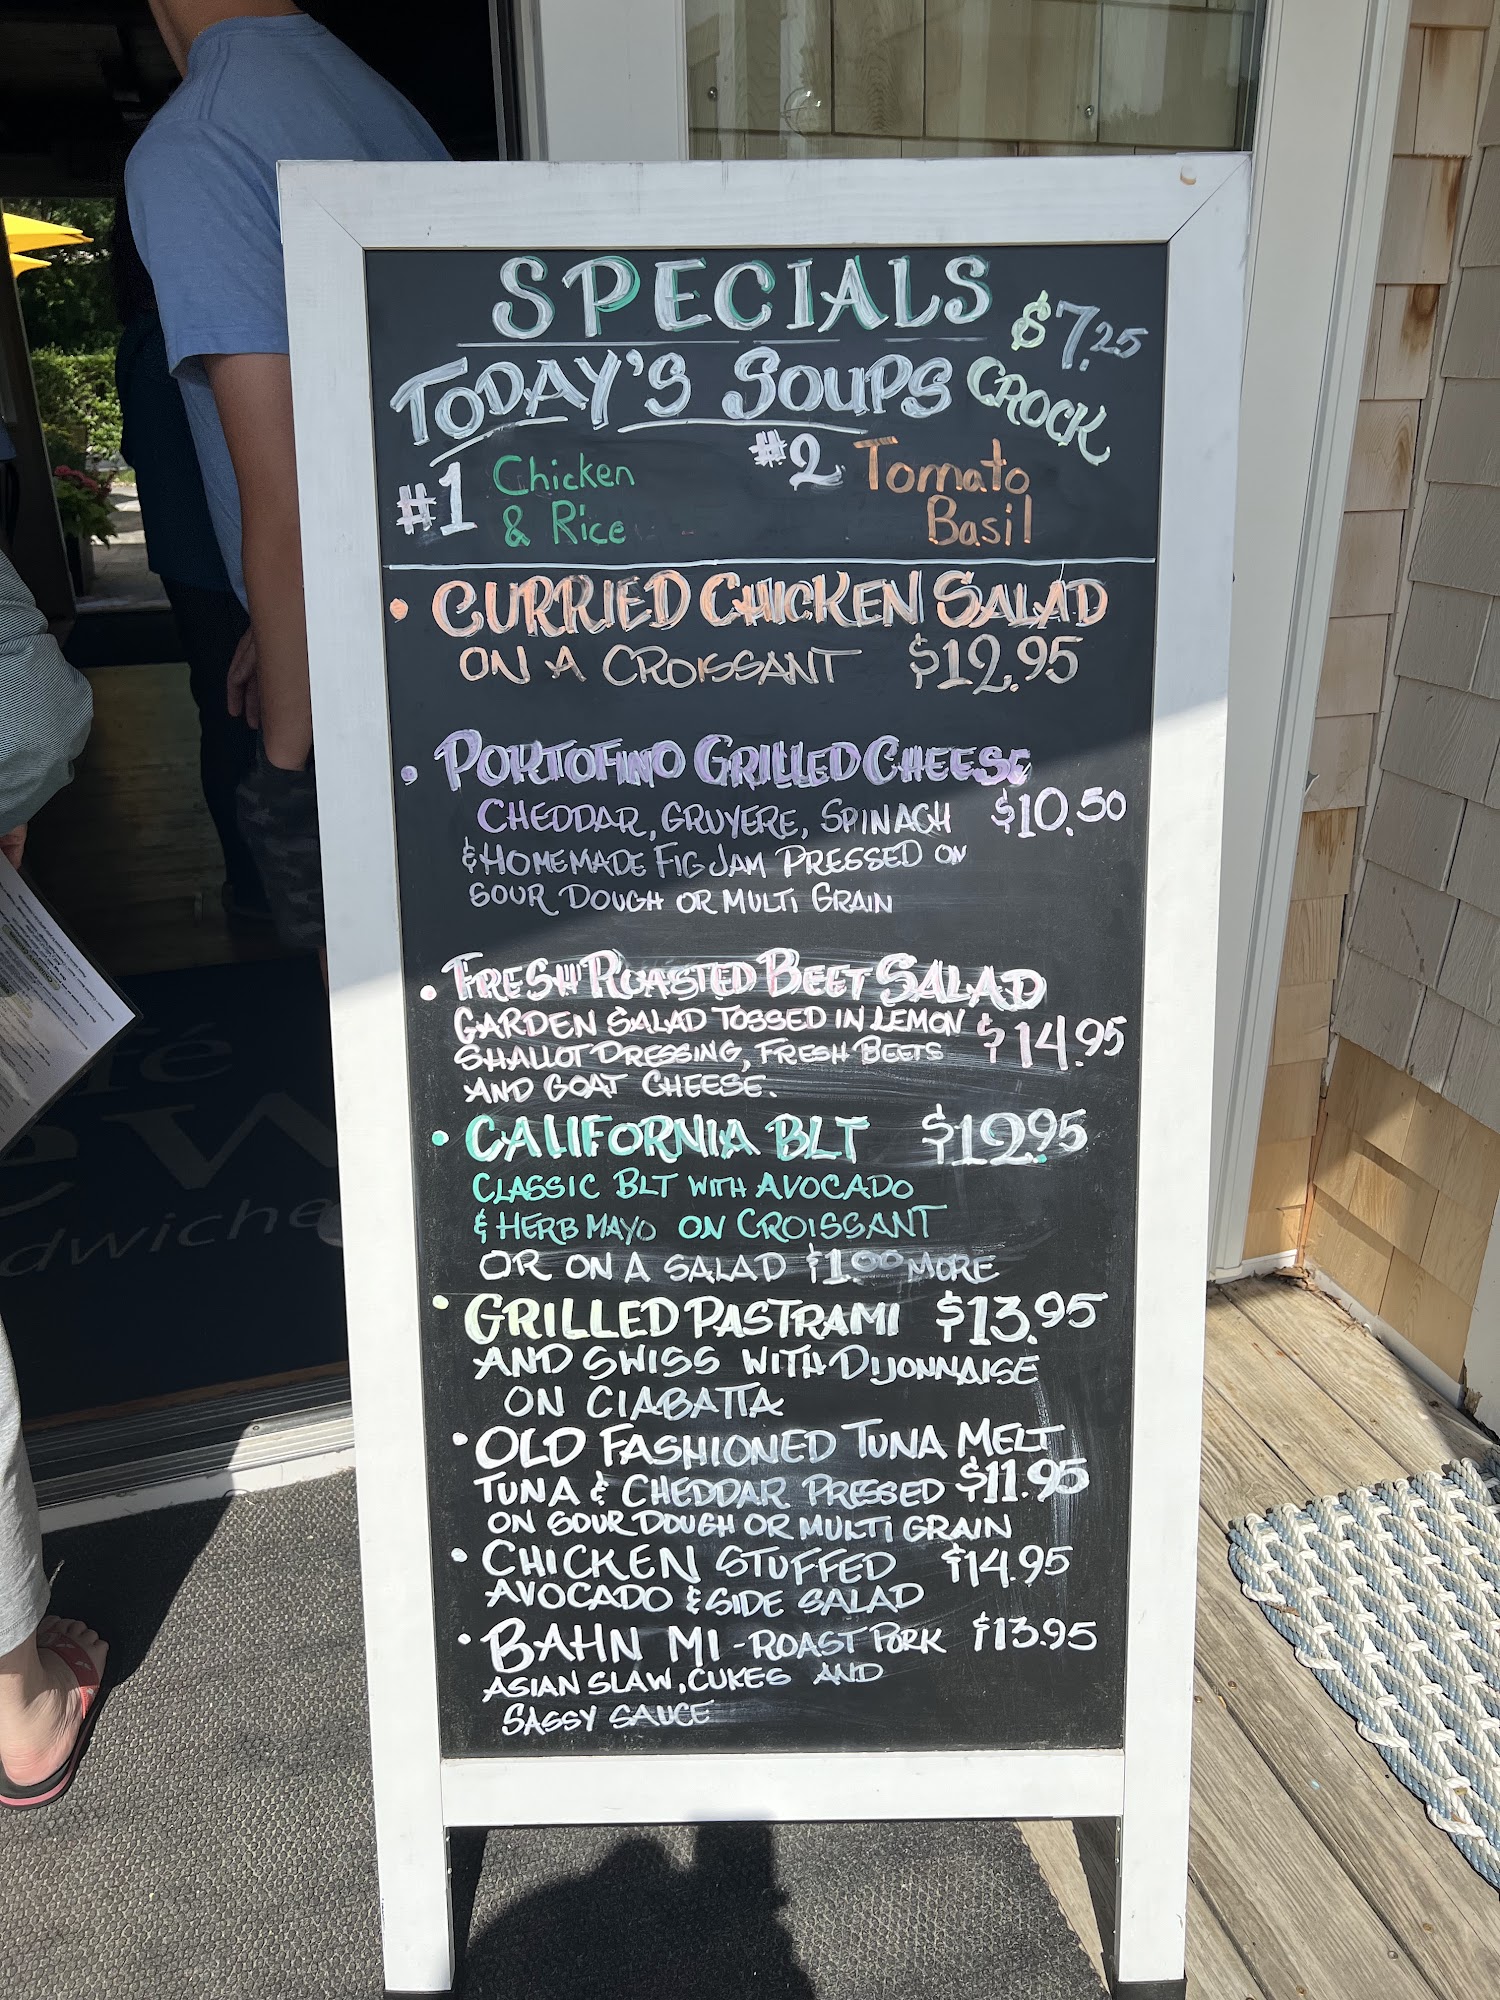 SPECIALS
TODAY'S SOUPS $7.25 CROCK
#1 Chicken & Rice
#2 Tomato Basil
• CURRIED CHICKEN SALAD
ON A CROISSANT $12.95
• PORTOFINO GRILLED CHEESE
CHEDDAR, GRUYERE, SPINACH $10.50
& HOMEMADE FIG JAM PRESSED ON
SOUR DOUGH OR MULTI GRAIN
• FRESH ROASTED BEET SALAD
GARDEN SALAD TOSSED IN LEMON $14.95
SHALLOT DRESSING, FRESH BEETS
AND GOAT CHEESE.
• CALIFORNIA BLT $12.95
CLASSIC BLT WITH AVOCADO
& HERB MAYO ON CROISSANT
OR ON A SALAD $1.00 MORE
• GRILLED PASTRAMI $13.95
AND SWISS WITH DIJONNAISE
ON CIABATTA
• OLD FASHIONED TUNA MELT
TUNA & CHEDDAR PRESSED $11.95
ON SOUR DOUGH OR MULTI GRAIN
• CHICKEN STUFFED $14.95
AVOCADO & SIDE SALAD
• BAHN MI - ROAST PORK $13.95
ASIAN SLAW, CUKES AND
SASSY SAUCE